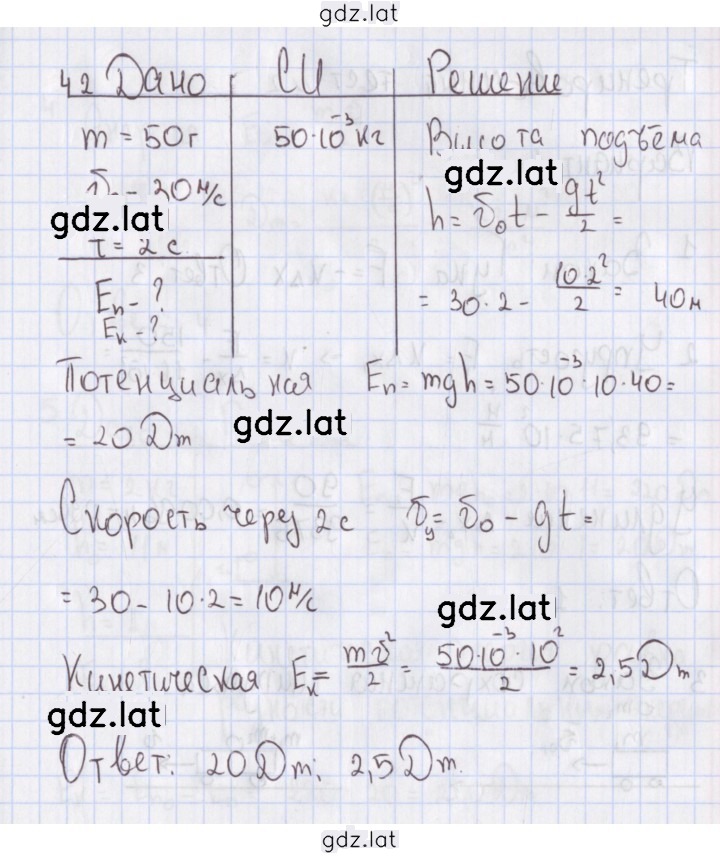 gdz.lat
42 Дано СИ Решение
m = 50г 50·10⁻³ кг Высота подъёма
gdz.lat
20 м/с
gdz.lat
h = υ₀t − gt²/2 =
t = 2 с.
Eп - ?
Eк - ?
= 30·2 − 10·2²/2 = 40м
Потенциальная Eп = mgh = 50·10⁻³·10·40 =
= 20 Дж
gdz.lat
Скорость через 2с υy = υ₀ − gt =
= 30 − 10·2 = 10 м/с
gdz.lat
Кинетическая Eк = mυ²/2 = 50·10⁻³·10²/2 = 2,5 Дж
gdz.lat
Ответ: 20 Дж; 2,5 Дж.
gdz.lat